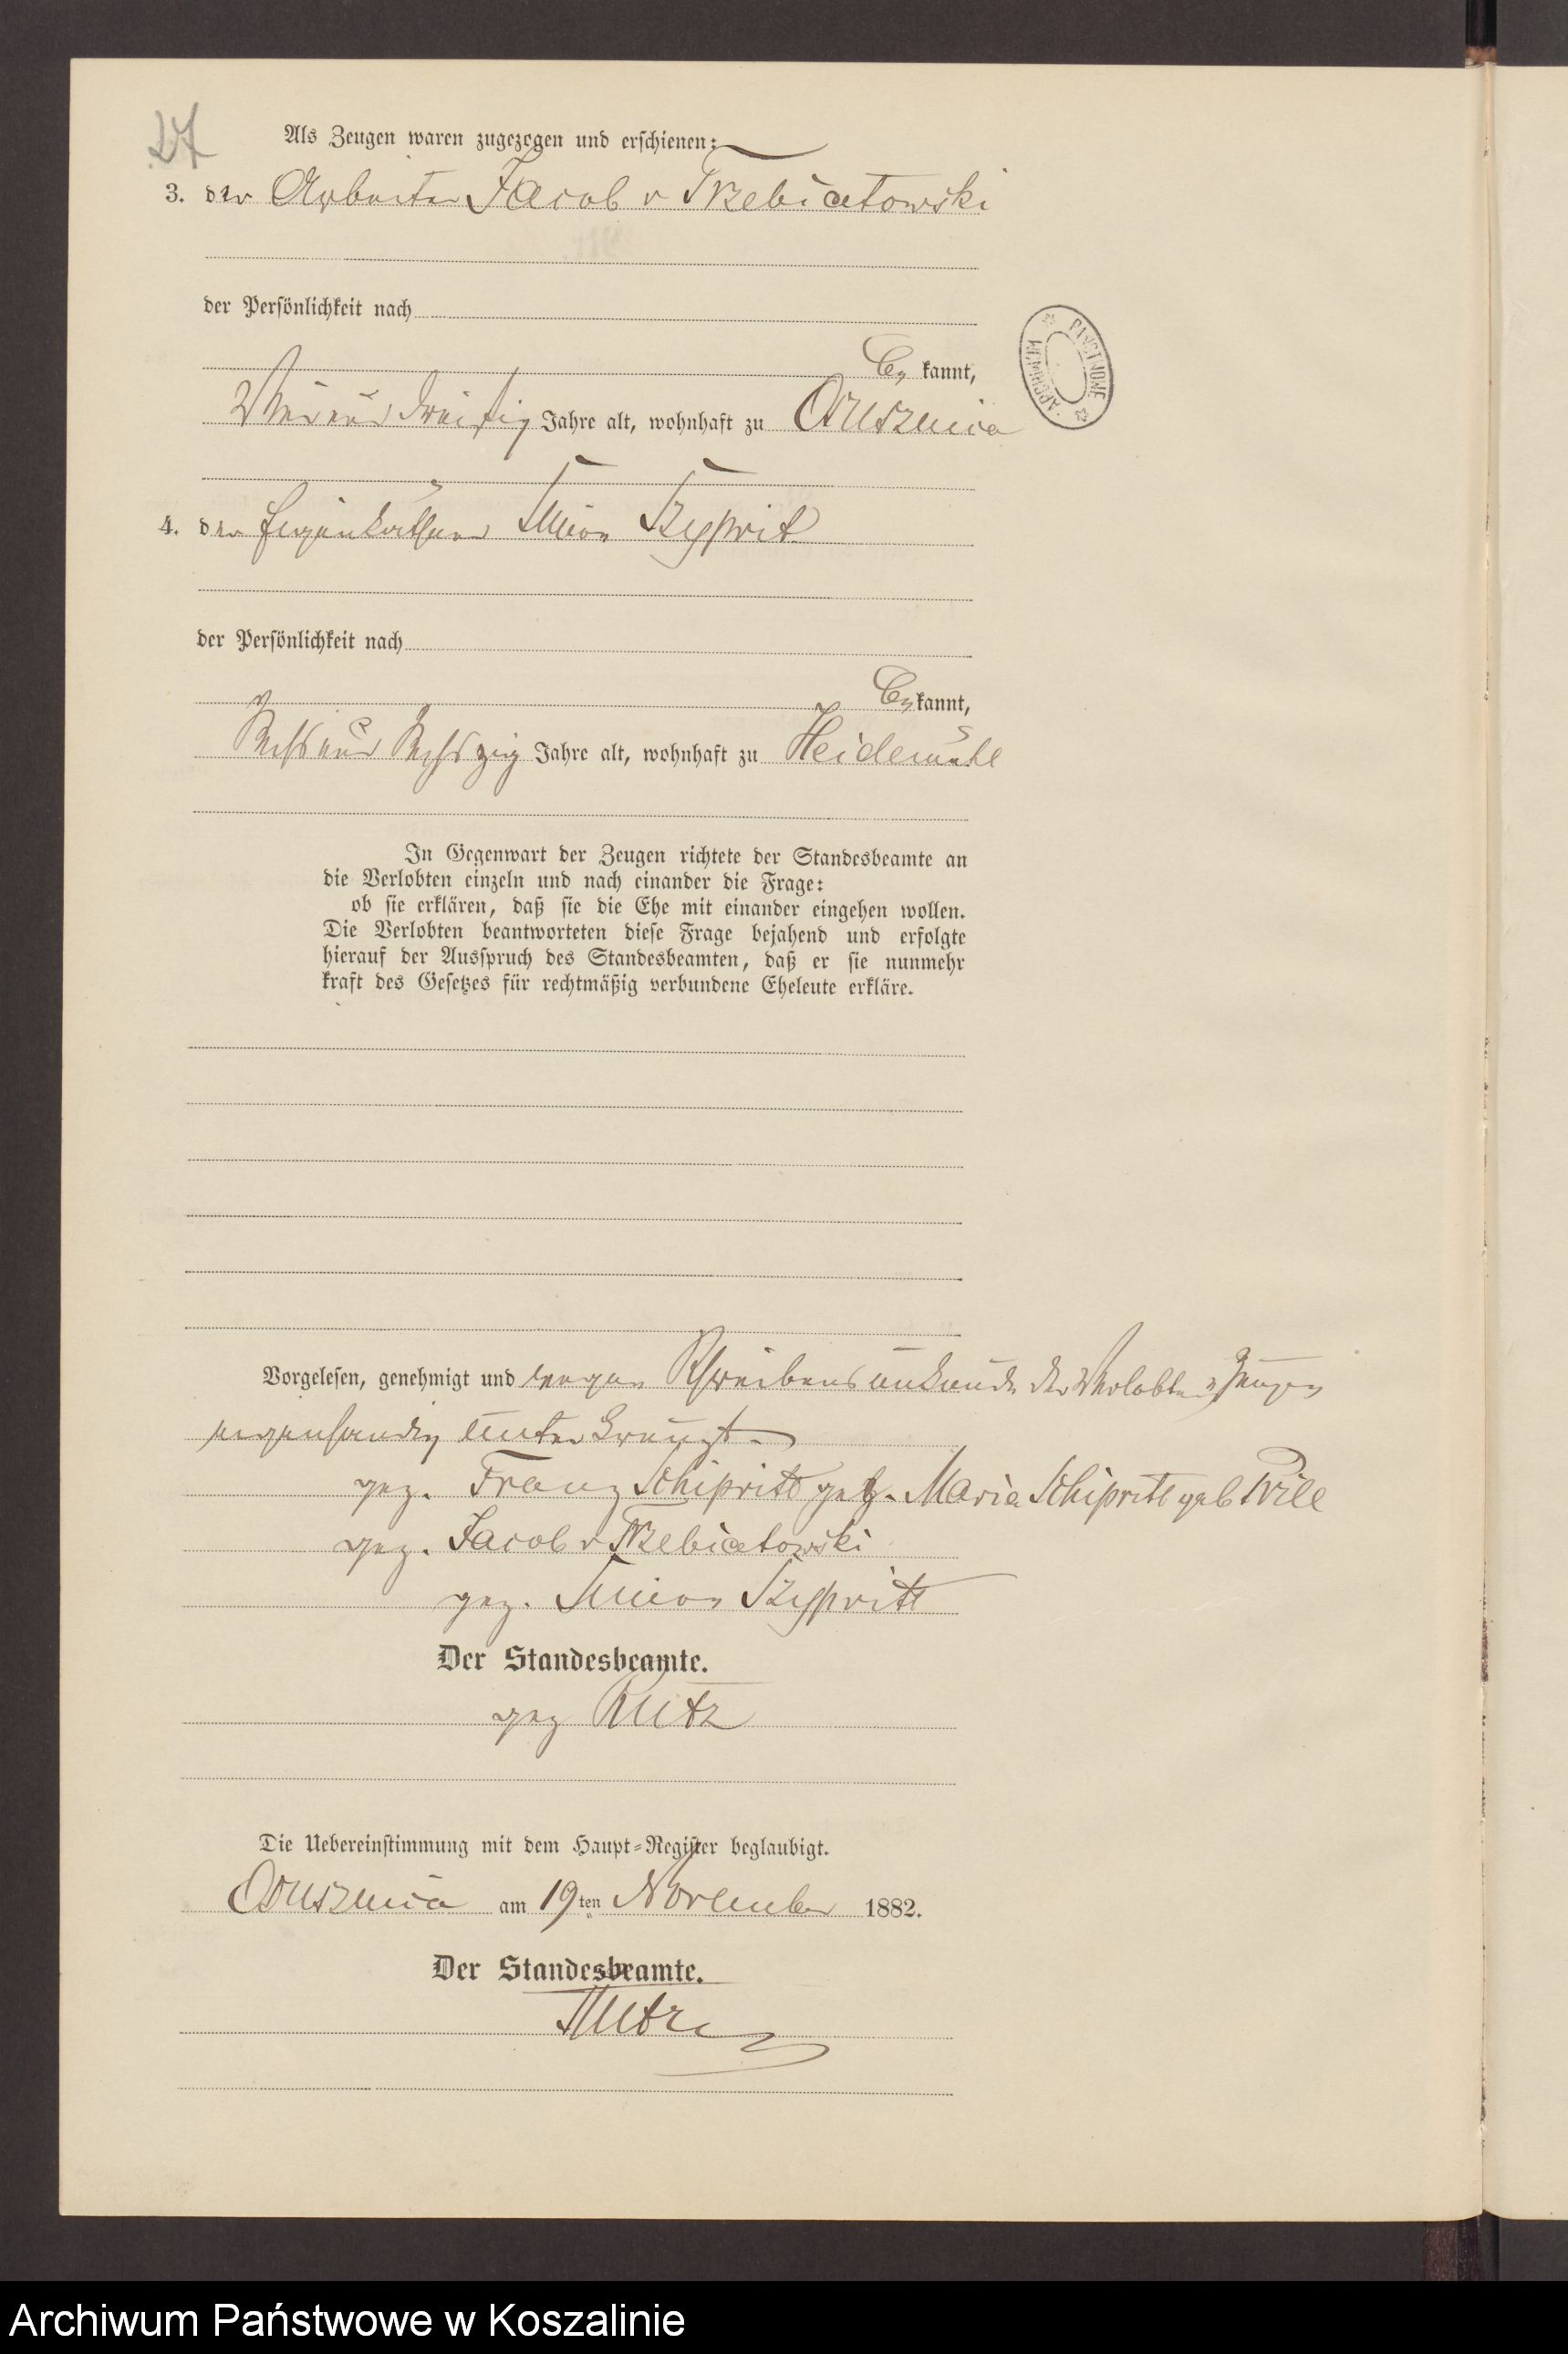 27
Als Zeugen waren zugezogen und erschienen:
3. der Arbeiter Jacob v Trzebiatowski
der Persönlichkeit nach
be kannt,
Vierunddreißig Jahre alt, wohnhaft zu Oslusznica
4. der Eigenkäthner Simon Szyprit
der Persönlichkeit nach
be kannt,
Sechsundsechszig Jahre alt, wohnhaft zu Heidemühl
In Gegenwart der Zeugen richtete der Standesbeamte an
die Verlobten einzeln und nach einander die Frage:
ob sie erklären, daß sie die Ehe mit einander eingehen wollen.
Die Verlobten beantworteten diese Frage bejahend und erfolgte
hierauf der Ausspruch des Standesbeamten, daß er sie nunmehr
kraft des Gesetzes für rechtmäßig verbundene Eheleute erkläre.
Vorgelesen, genehmigt und wegen Schreibensunkunde der Verlobten u Zeugen
eigenhändig unterkreuzt.
gez. Franz Schipritt gez. Maria Schipritt geb
gez. Jacob v Trzebiatowski
gez. Simon Szypritt
Der Standesbeamte.
gez Rutz
Die Uebereinstimmung mit dem Haupt-Register beglaubigt.
am 19ten November 1882.
Der Standesbeamte.
Rutz
ARCHIWUM PAŃSTWOWE
Archiwum Państwowe w Koszalinie